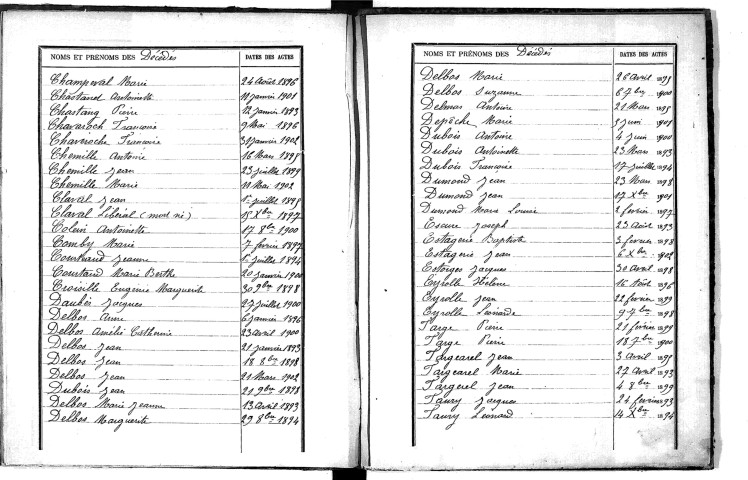 NOMS ET PRÉNOMS DES Décédés DATES DES ACTES
Champeval Marie 24 Août 1896
Chastanet Antoinette 11 janvier 1901
Chastang Pierre 12 janvier 1893
Chavaroch Françoise 9 Mai 1896
Chaviroche Françoise 31 janvier 1902
Chemille Antoine 16 Mars 1898
Chemille Jean 23 juillet 1899
Chemille Marie 11 Mai 1902
Claval Jean 1er juillet 1898
Claval Libéral (mort né) 15 Xbre 1897
Colein Antoinette 17 8bre 1900
Comby Marie 7 février 1897
Courtaud Jeanne 1er juillet 1894
Courtaud Marie Berthe 20 janvier 1900
Croisille Eugénie Marguerite 30 9bre 1898
Daubès Jacques 27 juillet 1900
Delbos Anne 6 janvier 1896
Delbos Amélie Catherine 23 avril 1900
Delbos Jean 21 janvier 1893
Delbos Jean 18 8bre 1898
Delbos Jean 21 Mars 1902
Dubois Jean 21 9bre 1898
Delbos Marie Jeanne 13 avril 1893
Delbos Marguerite 29 8bre 1894
NOMS ET PRÉNOMS DES Décédés DATES DES ACTES
Delbos Marie 26 avril 1898
Delbos Suzanne 6 7bre 1900
Delmas Antoine 21 Mars 1895
Depêche Marie 9 juin 1901
Dubois Antoine 4 juin 1900
Dubois Antoinette 23 Mars 1893
Dubois Françoise 17 juillet 1894
Dumond Jean 23 Mars 1898
Dumond Jean 17 Xbre 1901
Dumond Marie Louise 2 février 1897
Escure Joseph 23 Août 1893
Estagerie Baptiste 3 février 1898
Estagerie Jean 6 Xbre 1902
Estorges Jacques 30 avril 1898
Eyrolle Hélène 16 Août 1896
Eyrolle Jean 22 février 1899
Eyrolle Léonarde 9 7bre 1898
Farge Pierre 21 février 1899
Farge Pierre 18 7bre 1900
Fargearel Jean 3 avril 1895
Fargearel Marie 27 avril 1893
Fargerel Jean 4 8bre 1899
Faury Jacques 24 février 1893
Faury Léonard 14 Xbre 1894